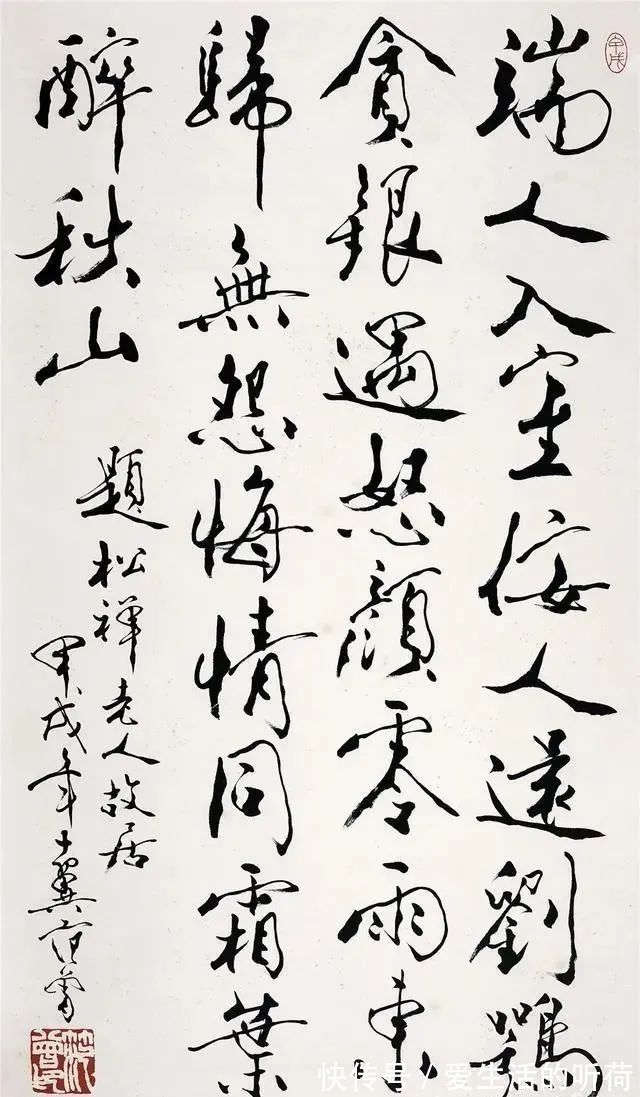 端人入室佞人遠劉鶚
貪銀遇怒顏零雨東
歸無怨悔情同霜葉
醉秋山
題松禪老人故居
甲戌年十翼范曾
快传号/爱生活的听荷